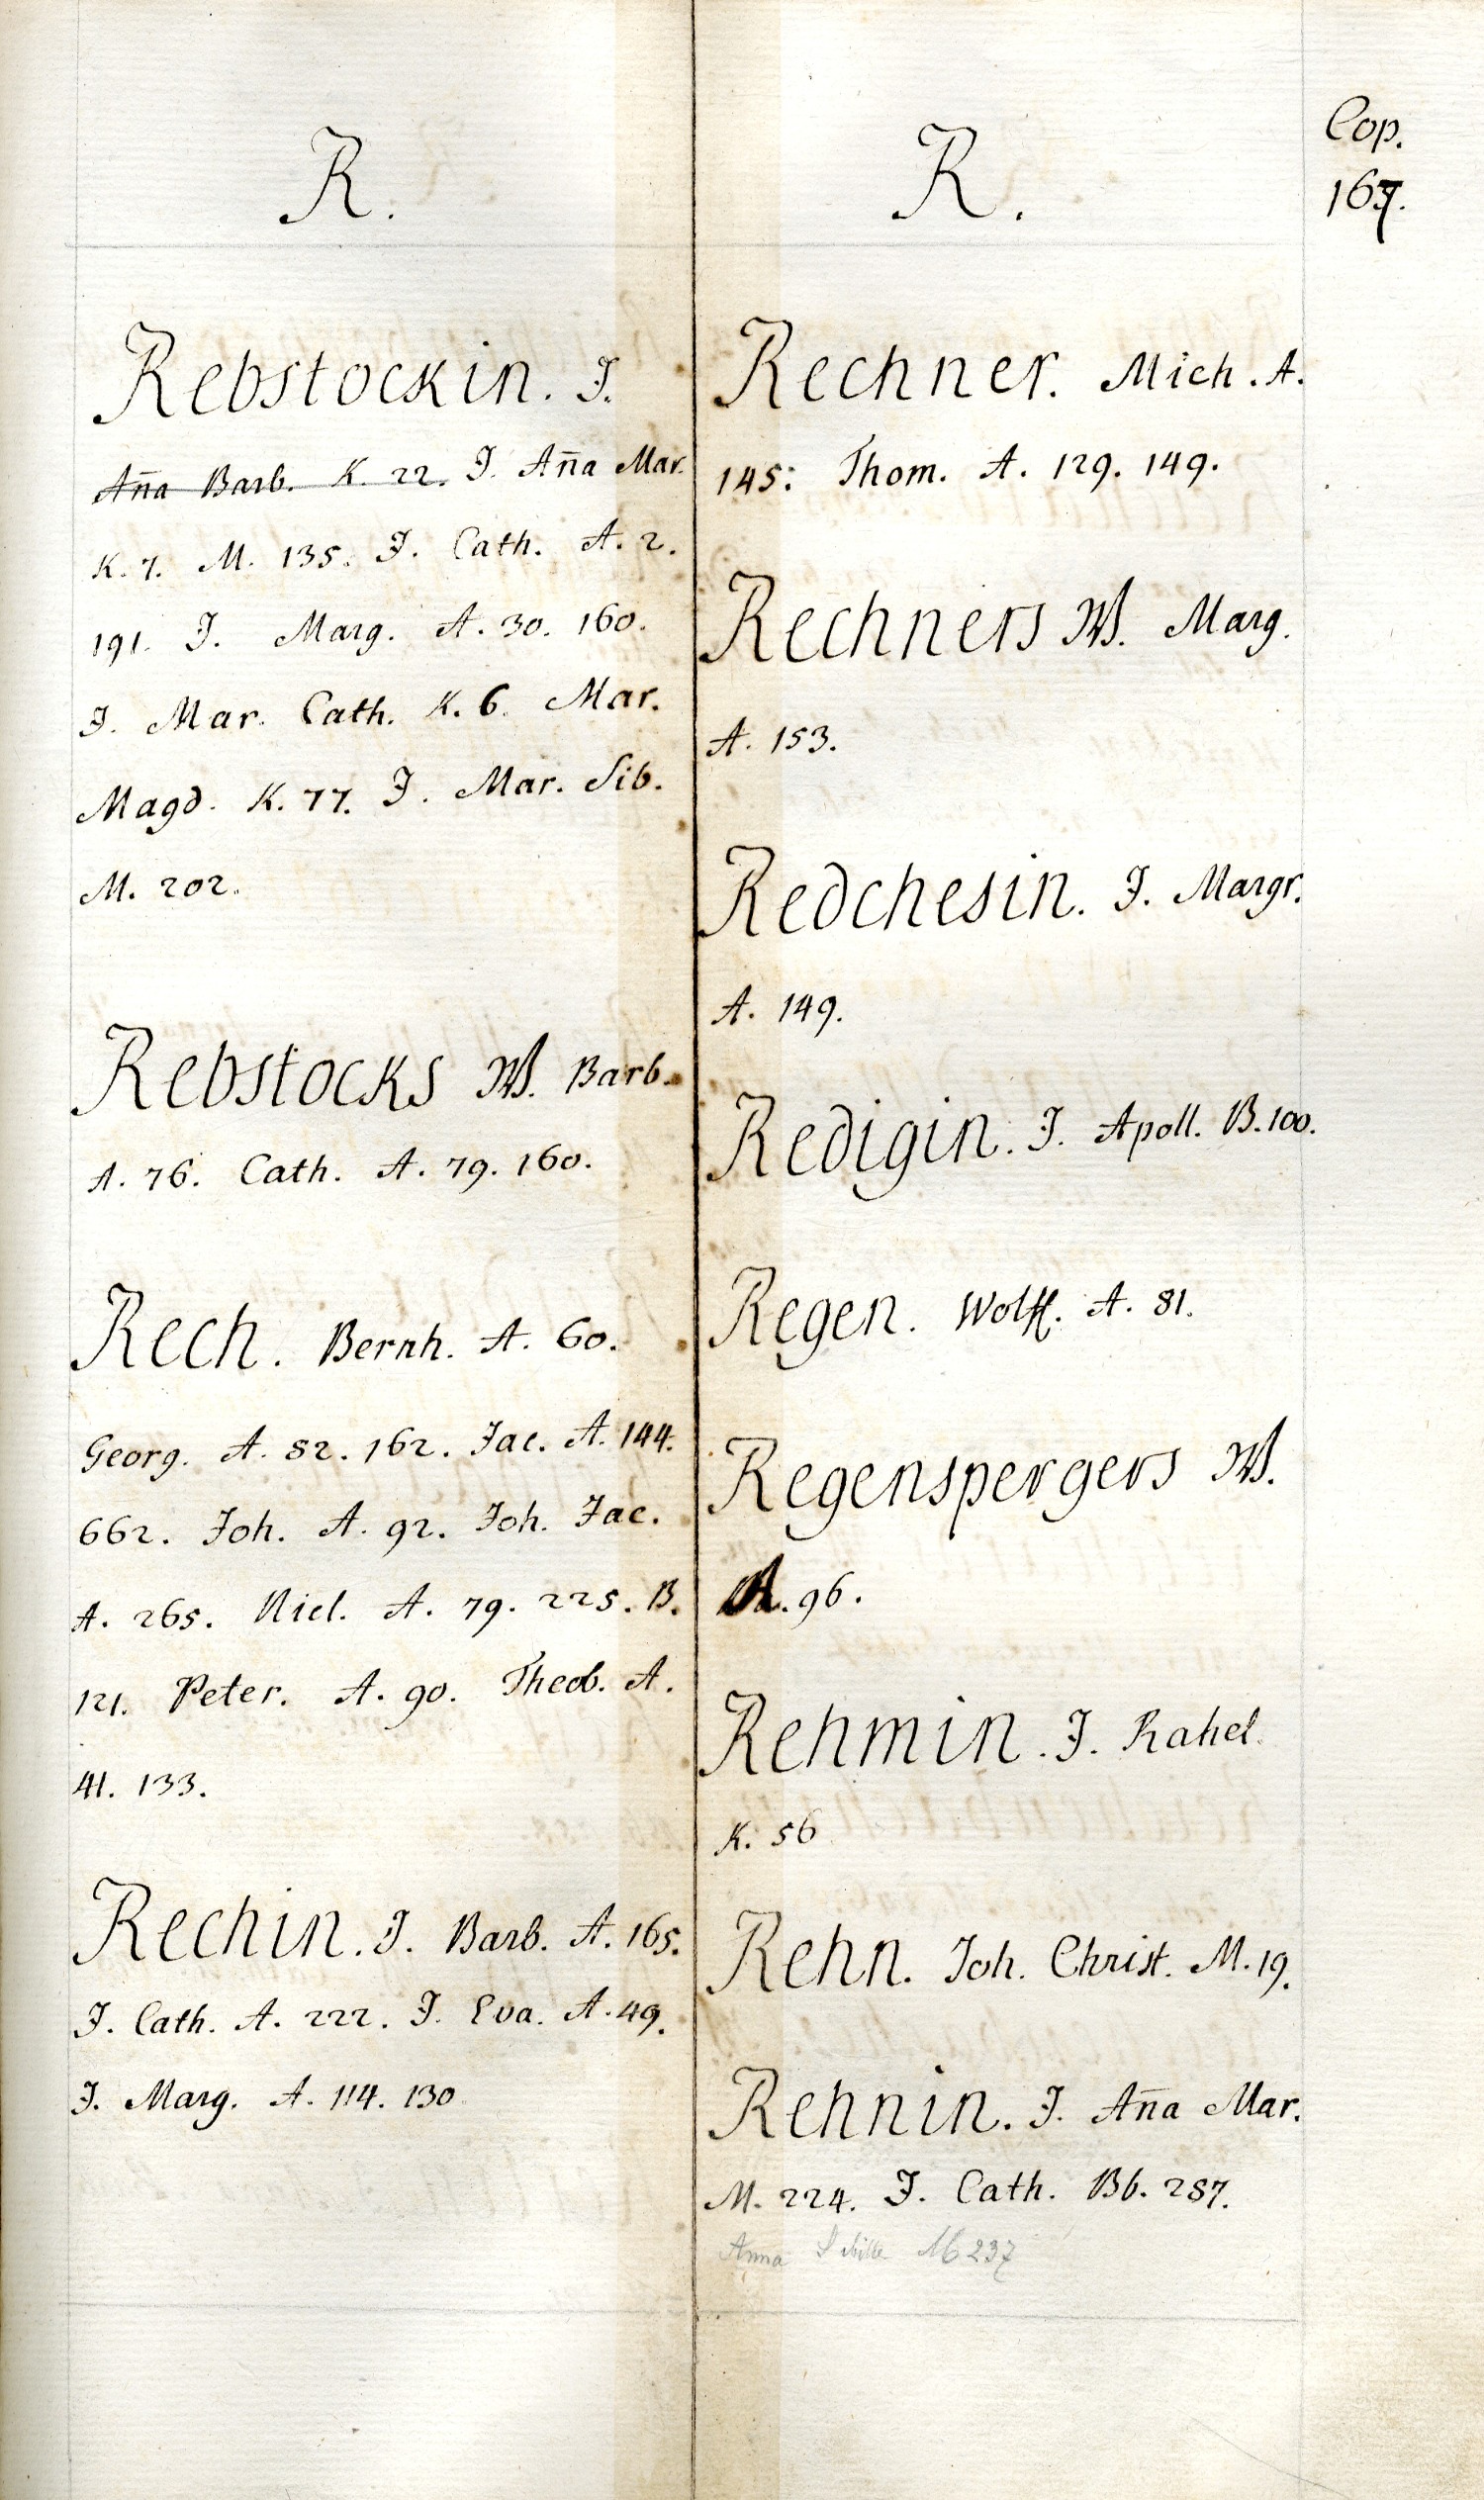 Cop.
167.
R.
Rebstockin. J.
Ana̅ Barb. K. 22. J. Ana̅ Mar.
K. 7. M. 135. J. Cath. A. 2.
191. J. Marg. A. 30. 160.
J. Mar. Cath. K. 6. Mar.
Magd. K. 77. J. Mar. Sib.
M. 202.
Rebstocks W. Barb.
A. 76. Cath. A. 79. 160.
Rech. Bernh. A. 60.
Georg. A. 82. 162. Jac. A. 144.
662. Joh. A. 92. Joh. Jac.
A. 265. Nicl. A. 79. 225. B.
121. Peter. A. 90. Theob. A.
41. 133.
Rechin. J. Barb. A. 165.
J. Cath. A. 222. J. Eva. A. 49.
J. Marg. A. 114. 130.
R.
Rechner. Mich. A.
145: Thom. A. 129. 149.
Rechners W. Marg.
A. 153.
Redchesin. J. Margr.
A. 149.
Redigin. J. Apoll. B. 100.
Regen. Wolff. A. 81.
Regenspergers W.
A. 96.
Rehmin. J. Rahel.
K. 56
Rehn. Joh. Christ. M. 19.
Rehnin. J. Ana̅ Mar.
M. 224. J. Cath. Bb. 287.
Anna M 237